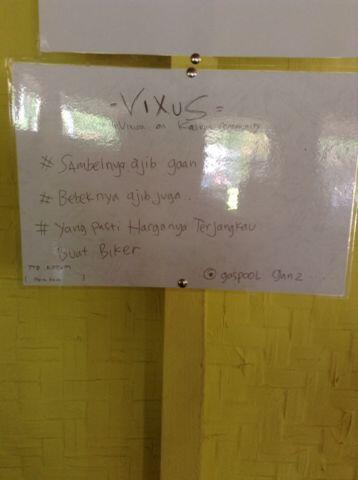 - VIXUS =
Vixion on Kaskus Community
# SAmbelnya ajib gaan
# Bebeknya ajib juga..
# Yang Pasti Harganya Terjangkau
Buat Biker
TTD KETUM
gaspooL ganz ...